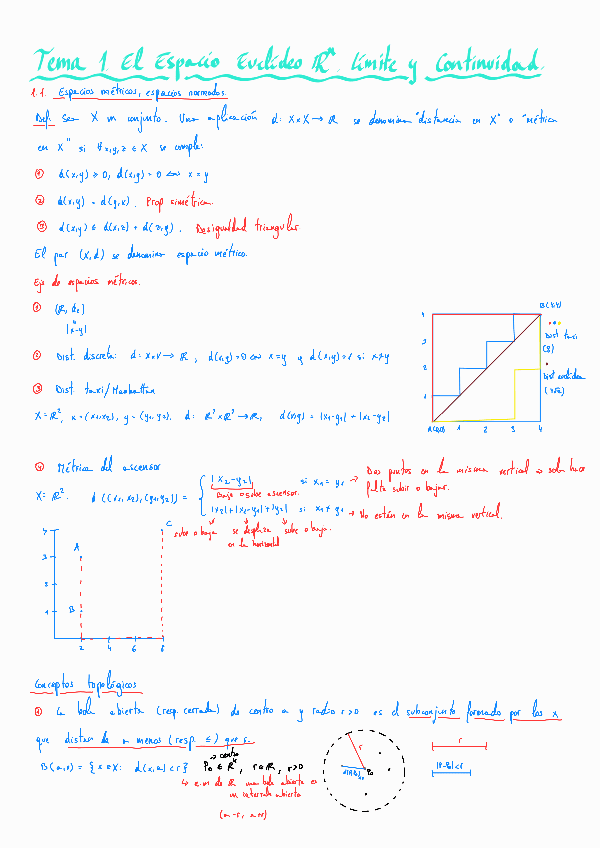 Tema 1 El Espacio Euclídeo ℝⁿ. Límite y Continuidad.
1.1. Espacios métricos, espacios normados.
Def: Sea X un conjunto. Una aplicación d: X×X → ℝ se denomina "distancia en X" o "métrica
en X" si ∀x,y,z ∈ X se cumple:
① d(x,y) ≥ 0, d(x,y) = 0 ⟺ x = y
② d(x,y) = d(y,x). Prop. simétrica.
③ d(x,y) ≤ d(x,z) + d(z,y). Desigualdad triangular
El par (X,d) se denomina espacio métrico.
Ejs de espacios métricos.
① (ℝ, d₂)
"
|x-y|
② Dist. discreta: d: X×X → ℝ, d(x,y)=0 ⟺ x=y y d(x,y)=1 si x≠y
③ Dist taxi/Manhattan
X=ℝ², x=(x₁,x₂), y=(y₁,y₂). d: ℝ²×ℝ² → ℝ, d(x,y) = |x₁-y₁| + |x₂-y₂|
B(4,4)
4
3
2
1
A(0,0) 1 2 3 4
Dist taxi
(8)
Dist euclídea
(√32)
④ Métrica del ascensor
X= ℝ². d((x₁,x₂),(y₁,y₂)) =
|x₂-y₂| si x₁ = y₁ → Dos puntos en la misma vertical ⇒ solo hace
falta subir o bajar.
Baja o sube ascensor.
|x₂|+|x₁-y₁|+|y₂| si x₁ ≠ y₁ → No están en la misma vertical.
sube o baja se desplaza sube o baja.
en la horizontal
C
A
3
B
1
2 4 6 8
Conceptos topológicos
① La bola abierta (resp. cerrada) de centro a y radio r>0 es el subconjunto formado por los x
que distan de a menos (resp. ≤) que r.
B(a,r) = {x∈X: d(x,a)<r}
→ centro
P₀ ∈ ℝⁿ, r∈ℝ, r>0
↳ ej. en ℝ una bola abierta es
un intervalo abierto
(a-r, a+r)
r
P₀
r
|P-P₀|<r